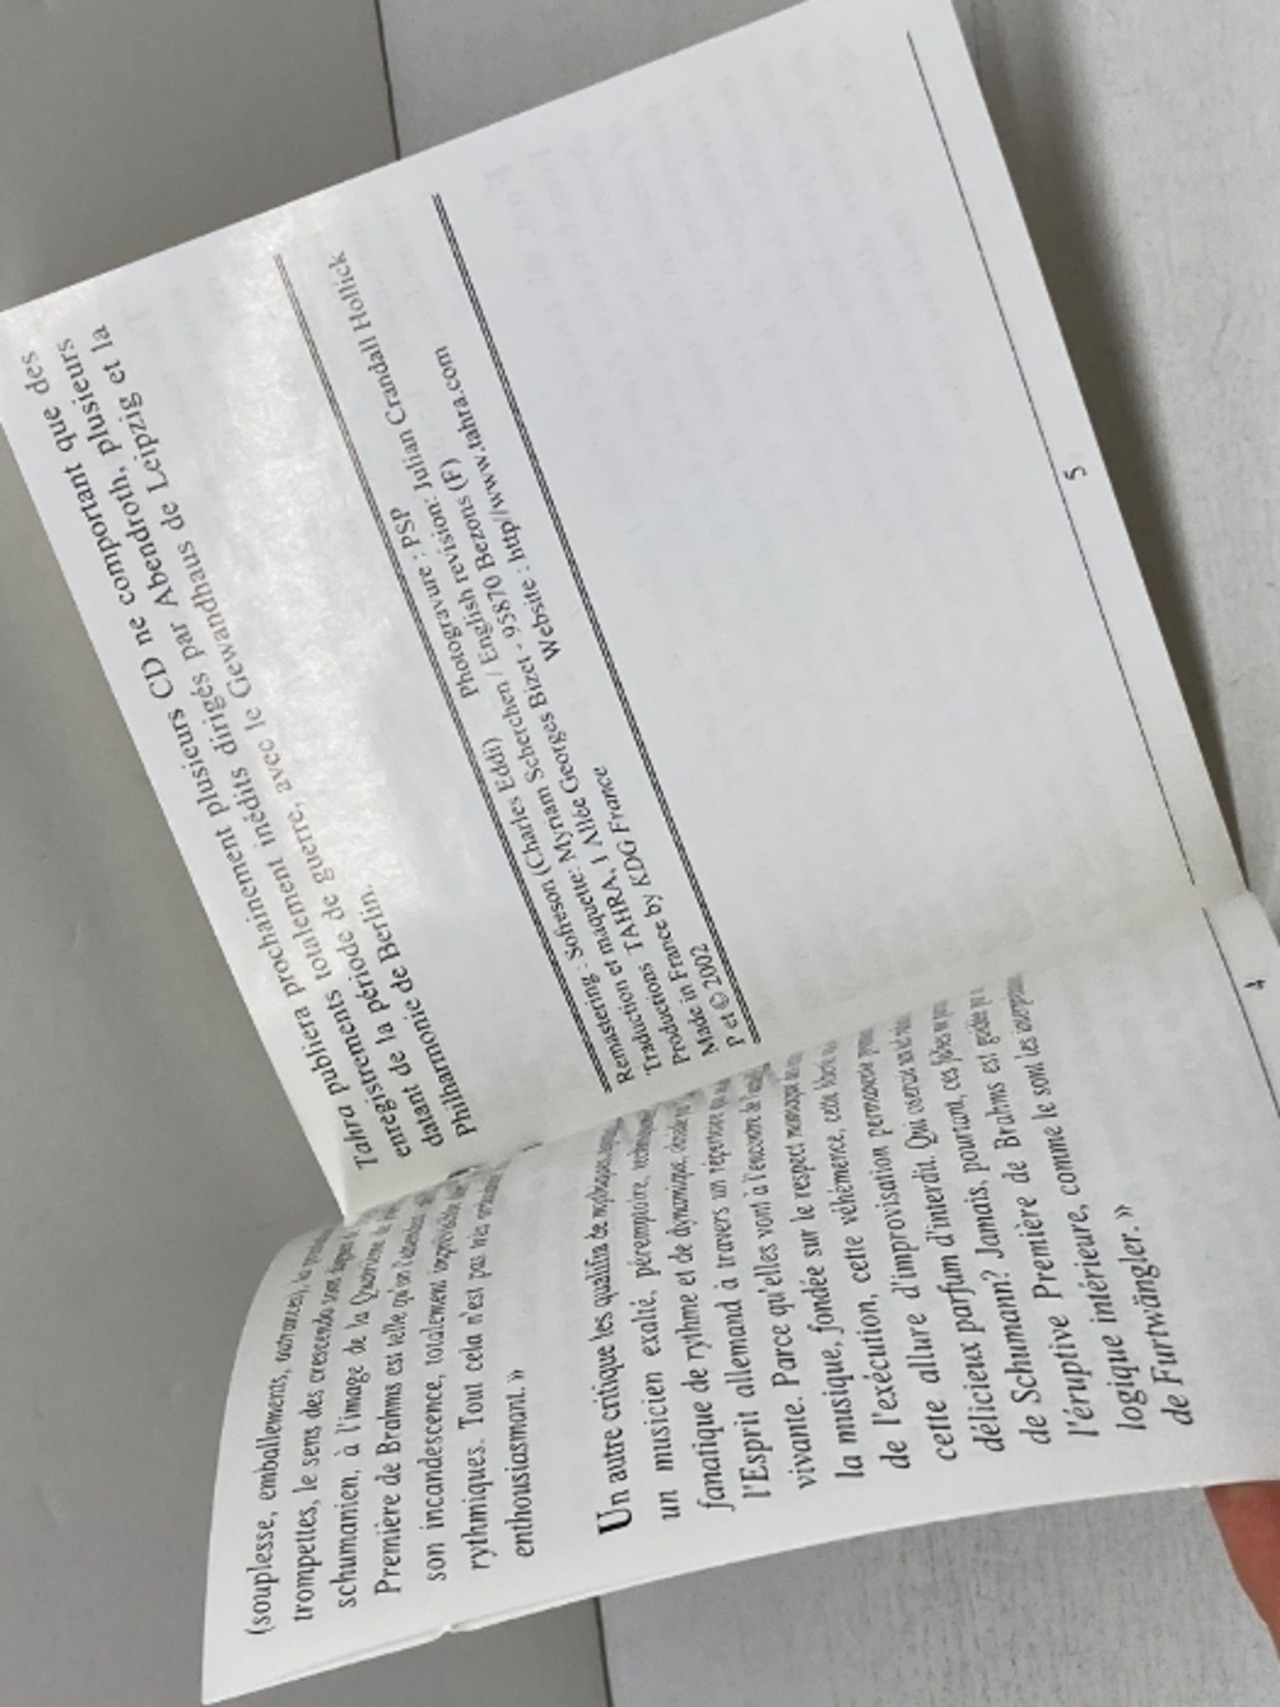 (souplesse, emballements, outrances), la
trompettes, le sens des crescendo sont
schumanien, à l'image de la Quatrième de
Première de Brahms est telle qu'on l'attendait
son incandescence, totalement imprévisible
rythmiques. Tout cela n'est pas très
enthousiasmant.»
Un autre critique les qualifia de mythiques
un musicien exalté, péremptoire,
fanatique de rythme et de dynamique,
l'Esprit allemand à travers un répertoire
vivante. Parce qu'elles vont à l'encontre de
la musique, fondée sur le respect
de l'exécution, cette véhémence, cette
cette allure d'improvisation permanente
délicieux parfum d'interdit. Qui oserait
de Schumann? Jamais, pourtant, ces
de Première de Brahms est guidée
l'éruptive Première, comme le sont les
logique intérieure,
de Furtwängler.»
4
Tahra publiera prochainement plusieurs CD ne comportant que des
enregistrements totalement inédits dirigés par Abendroth, plusieurs
datant de la période de guerre, avec le Gewandhaus de Leipzig et la
Philharmonie de Berlin.
Remastering : Sofreson (Charles Eddi) Photogravure : PSP
Traduction et maquette: Myriam Scherchen / English revision: Julian Crandall Hollick
Productions TAHRA, 1 Allée Georges Bizet - 95870 Bezons (F)
Made in France by KDG France Website : http//www.tahra.com
P et © 2002
5